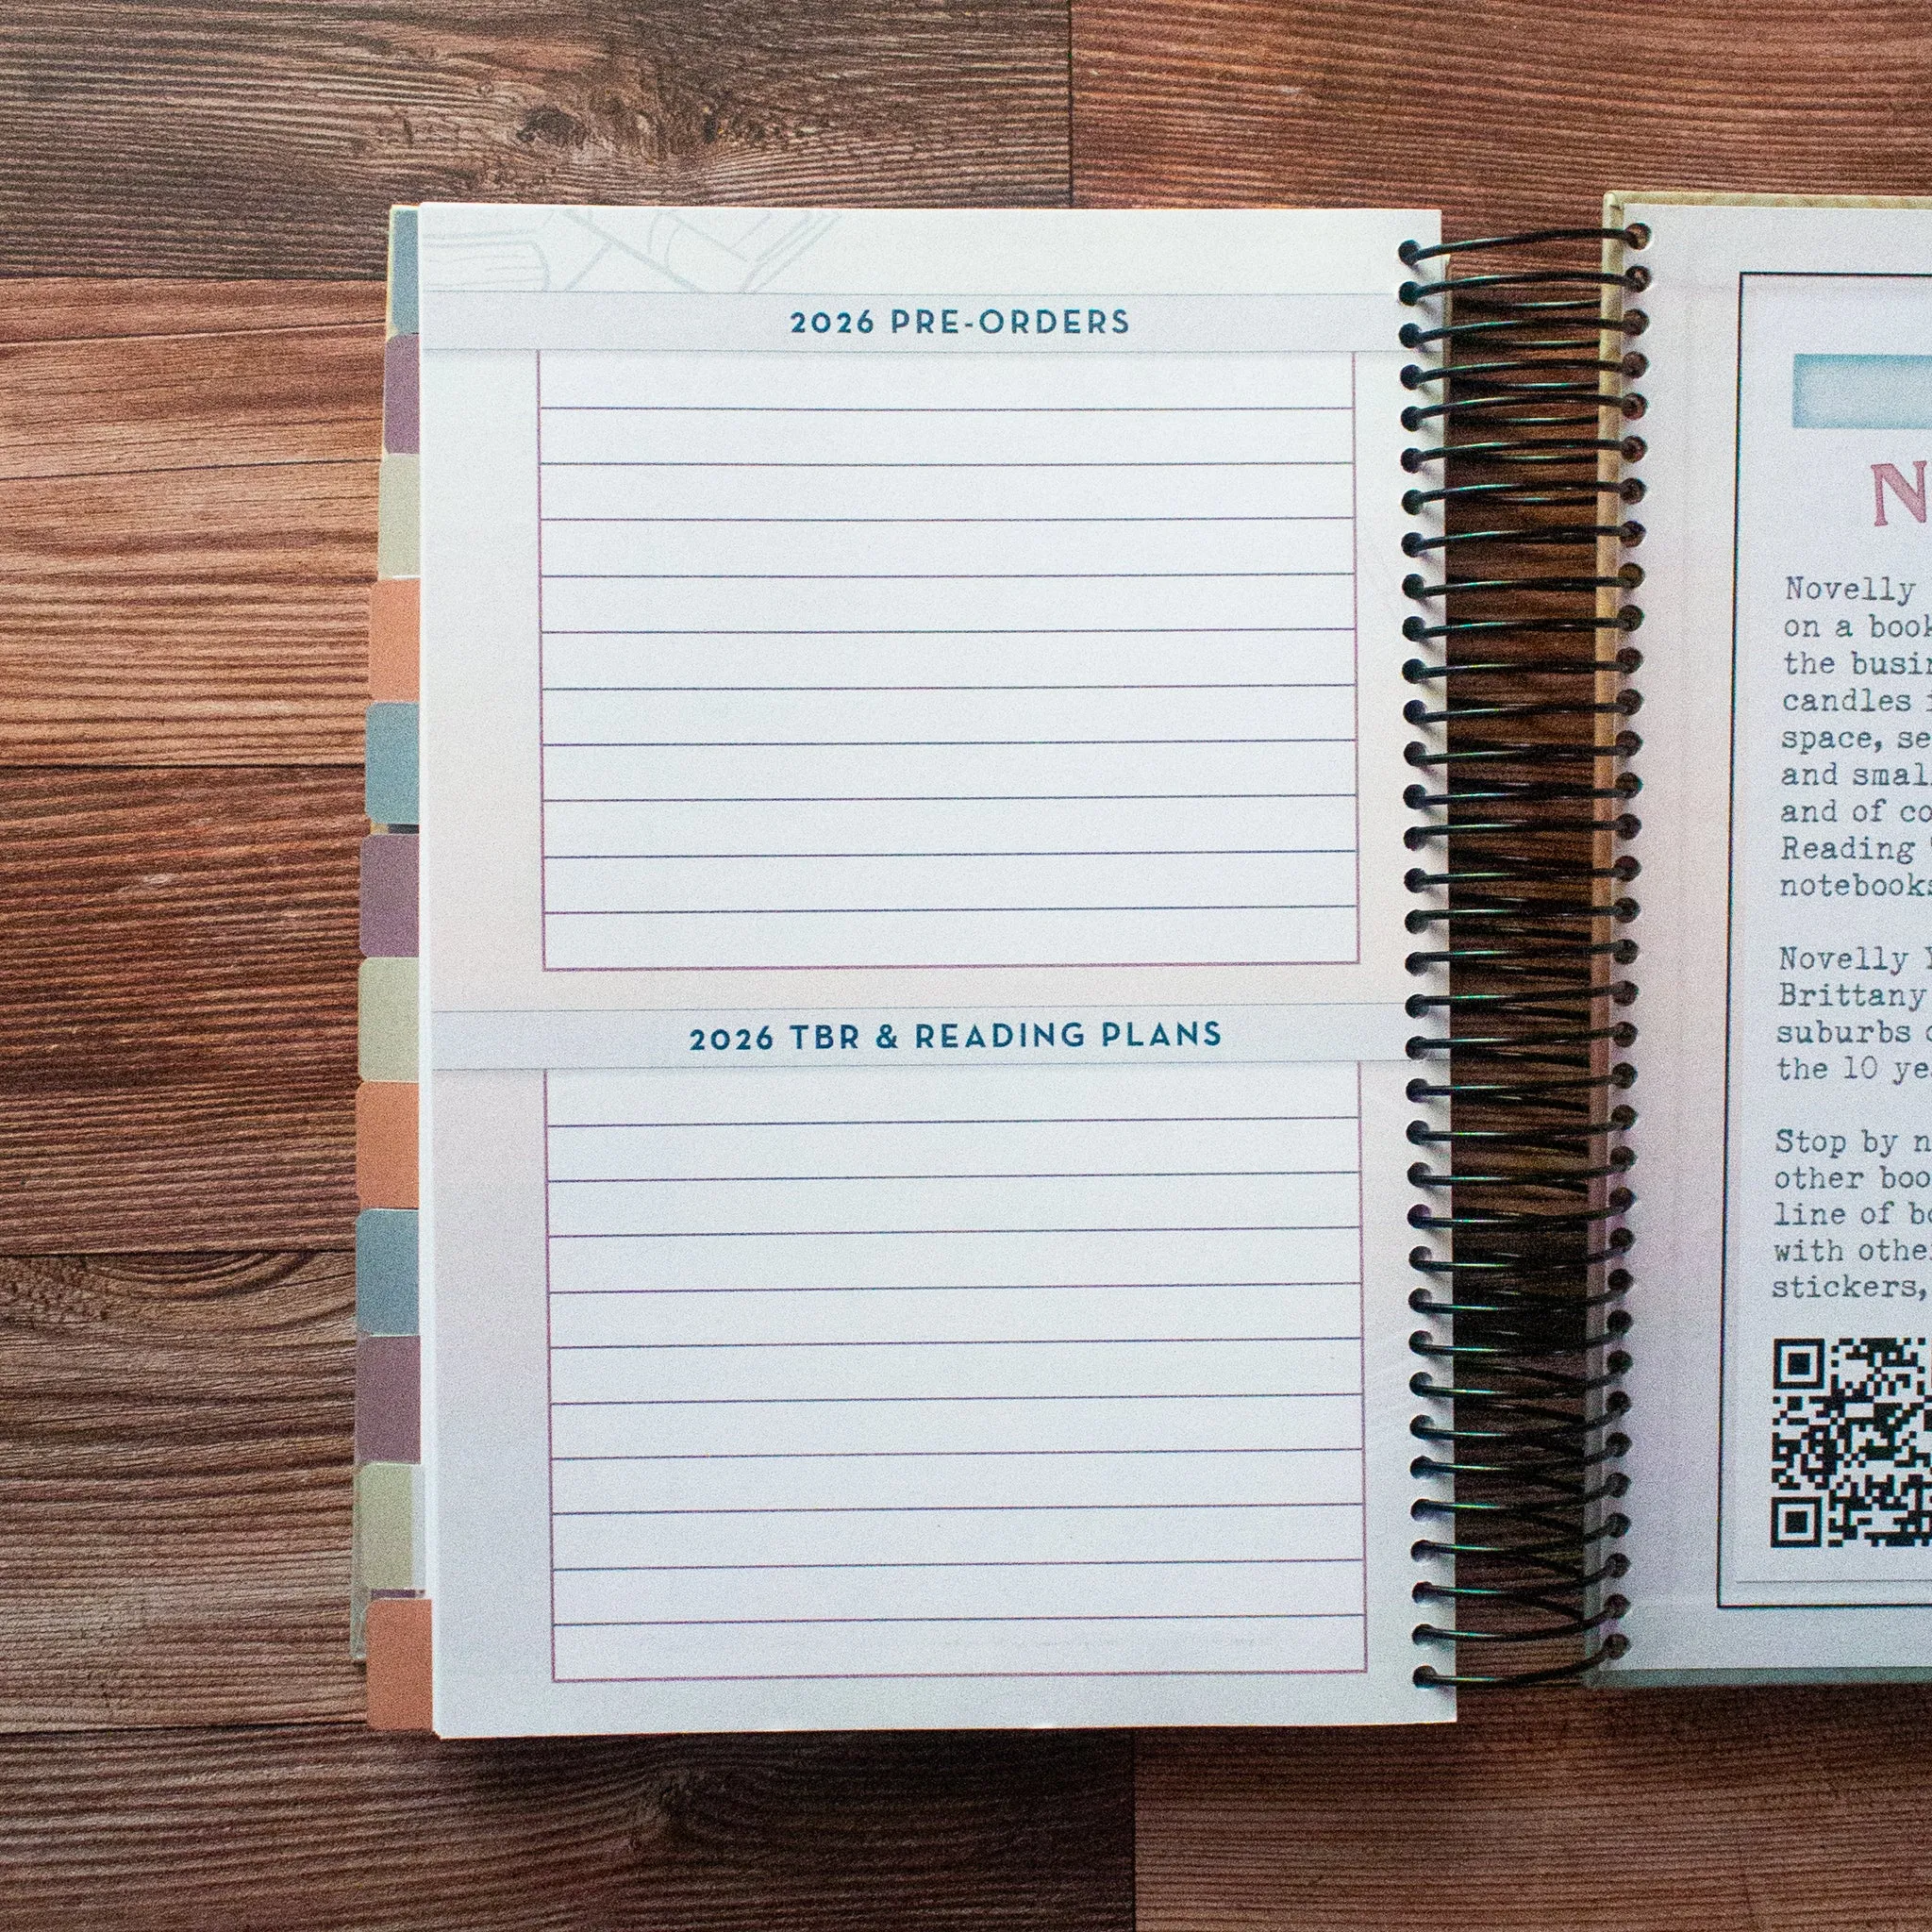 2026 PRE-ORDERS
2026 TBR & READING PLANS
N
Novelly
on a book
the busin
candles
space, se
and smal
and of co
Reading
notebooks
Novelly Y
Brittany
suburbs
the 10 ye
Stop by n
other boo
line of bo
with othe
stickers,